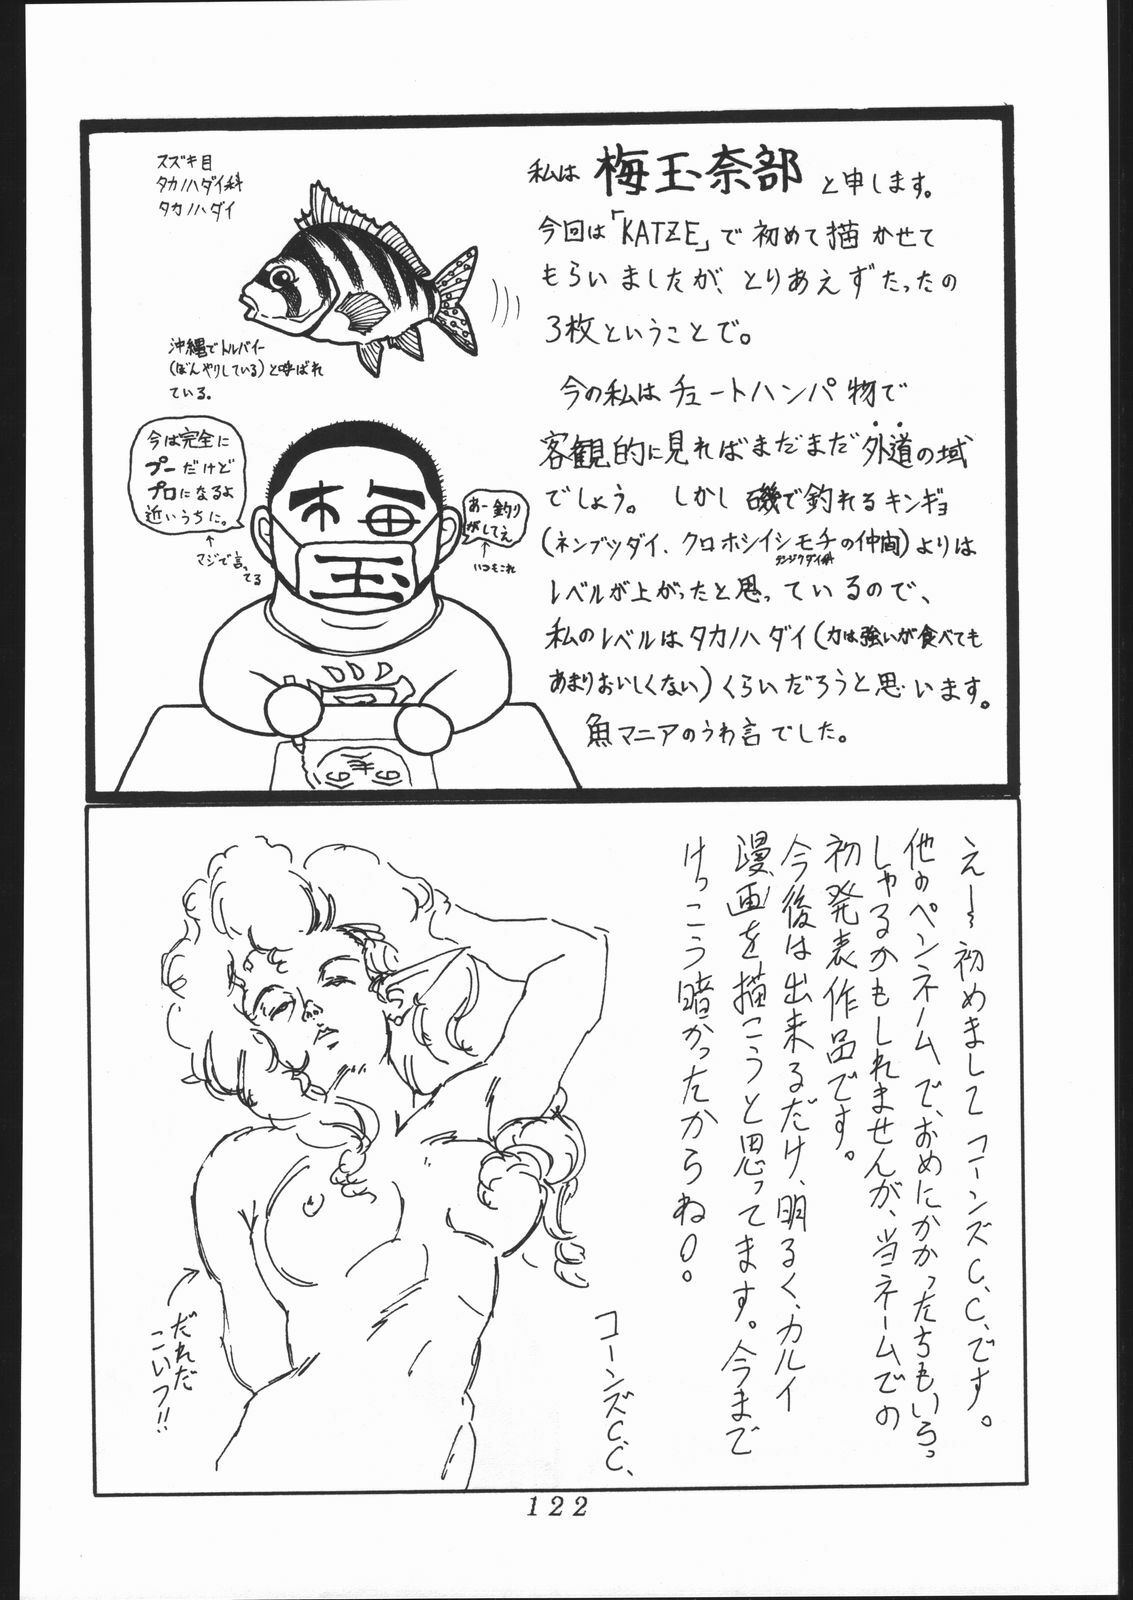 スズキ目
タカノハダイ科
タカノハダイ
沖縄でトルバイー
(ぼんやりしている)と呼ばれ
ている。
私は 梅玉奈部 と申します。
今回は「KATZE」で初めて描かせて
もらいましたが、とりあえずたったの
3枚ということで。
今の私はチュートハンパ物で
客観的に見ればまだまだ外道の域
でしょう。しかし磯で釣れるキンギョ
(ネンブツダイ、クロホシイシモチの仲間)よりは
テンジクダイ科
レベルが上がったと思っているので、
私のレベルはタカノハダイ(力は強いが食べても
あまりおいしくない)くらいだろうと思います。
魚マニアのうわ言でした。
今は完全に
プーだけど
プロになるよ
近いうちに。
↑
マジで言ってる
あー釣り
がしてえ
↑
いつもこれ
梅
玉
え〜初めましてコーンズC.C.です。
他のペンネームで、おめにかかったちもいらっ
しゃるかもしれませんが、当ネームでの
初発表作品です。
今後は出来るだけ、明るく、カルイ
漫画を描こうと思ってます。今まで
けっこう暗かったからね。
コーンズC.C.
だれだ
こいつ!!
122